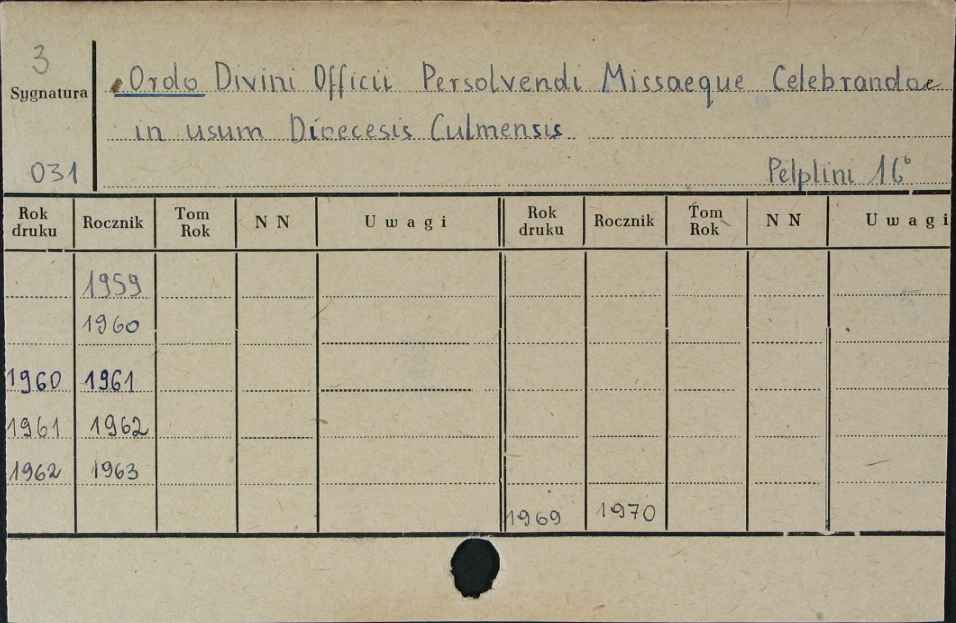 3
Sygnatura
031
Ordo Divini Officii Persolvendi Missaeque Celebrandae
in usum Dioecesis Culmensis
Pelplini 16°
Rok druku Rocznik Tom Rok N N Uwagi Rok druku Rocznik Tom Rok N N Uwagi
1959
1960
1960 1961
1961 1962
1962 1963
1969 1970